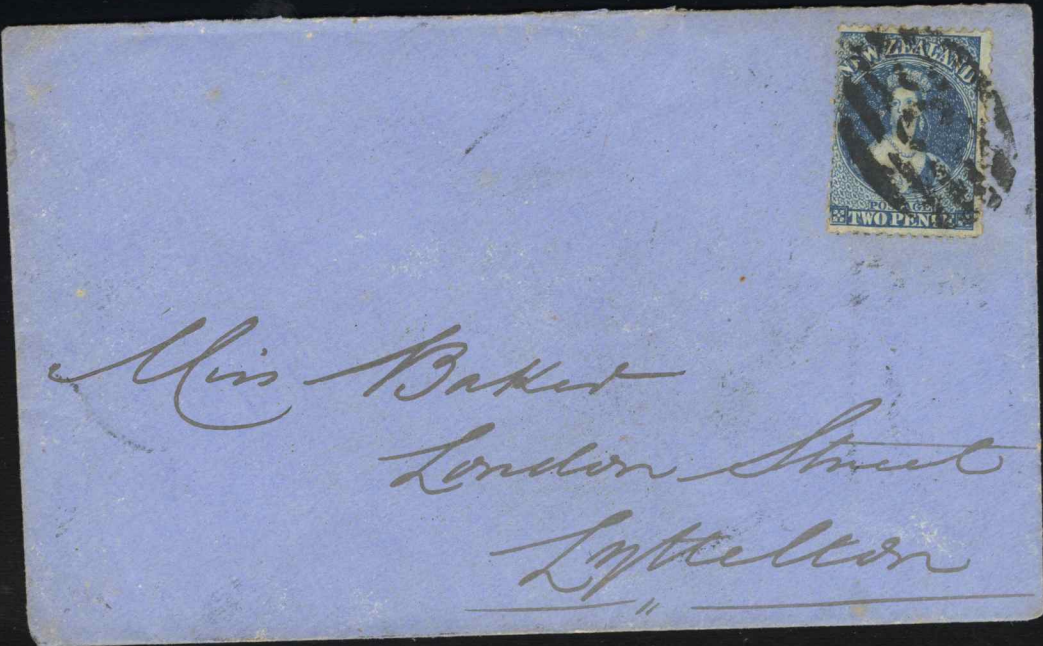 NEW ZEALAND
POSTAGE
TWO PENCE
Miss Baker
London Street
Lyttelton